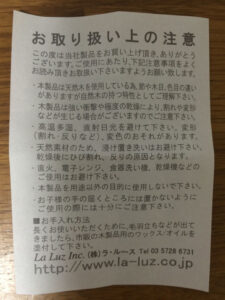 お取り扱い上の注意
この度は当社製品をお買い上げ頂き、ありがとう
ございます。ご使用にあたり、下記注意事項をよく
お読み頂きお取扱い下さいますようお願い致します。
・本製品は天然木を使用している為、節や木目、色の違い
がありますが自然木の持つ特性としてご理解下さい。
・木製品は強い衝撃や極度の乾燥により、割れや変形
などが生じる場合がございますのでご注意下さい。
・高温多湿、直射日光を避けて下さい。変形
(割れ・反りなど)、変色のおそれがあります。
・天然素材のため、浸け置き洗いはお避け下さい。
乾燥後にひび割れ、反りの原因となります。
・直火、電子レンジ、食器洗い機、乾燥機などの
ご使用はお避け下さい。
・本製品を用途以外の目的に使用しないで下さい。
・お子様の手の届くところには置かないように
ご使用の際には十分にご注意下さい。
■お手入れ方法
長くお使いいただくために、毛羽立ちなどが出て
きましたら、市販の木製品用のワックス/オイルを
塗付して下さい。
La Luz Inc. (株)ラ・ルース Tel 03 5728 6731
http://www.la-luz.co.jp